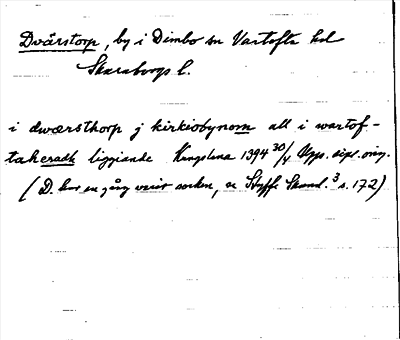 Dvärstorp, by i Dimbo sn Vartofta hd
Skaraborgs l.
i dwærsthorp j kirkiobynom all i wartof-
taheradh liggiande Kungslena 1394 30/4 Upps. dipl. orig.
(D. har en gång varit socken, se Styffe Skand.³ s. 172)